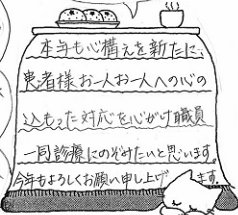 本年も心構えを新たに、
患者様お一人お一人への心の
込もった対応を心がけ職員
一同診療にのぞみたいと思います。
今年もよろしくお願い申し上げます。